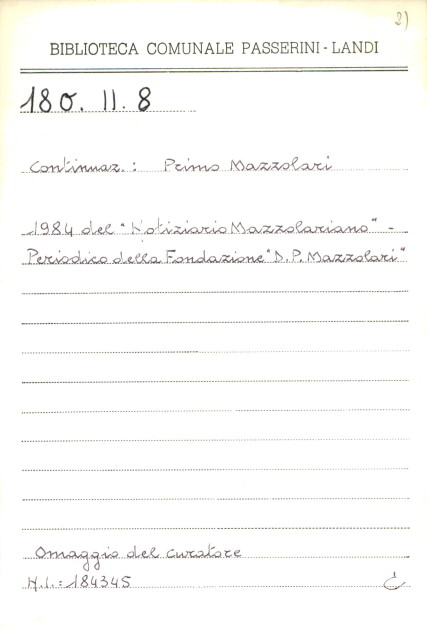 2)
BIBLIOTECA COMUNALE PASSERINI-LANDI
180. II. 8
Continuaz.: Primo Mazzolari
1984 del "Notiziario Mazzolariano" -
Periodico della Fondazione "D. P. Mazzolari"
Omaggio del curatore
N.I.: 184345